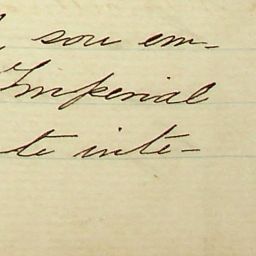 , sou em-
Imperial
te inte-